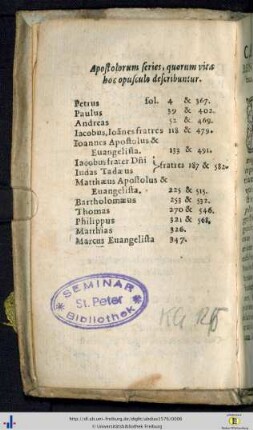 Apostolorum series, quorum vitæ
hoc opusculo describuntur.
Petrus fol. 4 & 367.
Paulus 39 & 402.
Andreas 52 & 469.
Iacobus, Ioãnes fratres 118 & 479.
Ioannes Apostolus &
Euangelista. 133 & 491.
Iacobus frater Dñi
Iudas Tadæus } fratres 187 & 582.
Matthæus Apostolus &
Euangelista. 225 & 515.
Bartholomæus 253 & 532.
Thomas 270 & 546.
Philippus 321 & 568.
Matthias 326.
Marcus Euangelista 347.
SEMINAR
St. Peter
Bibliothek
© Universitätsbibliothek Freiburg